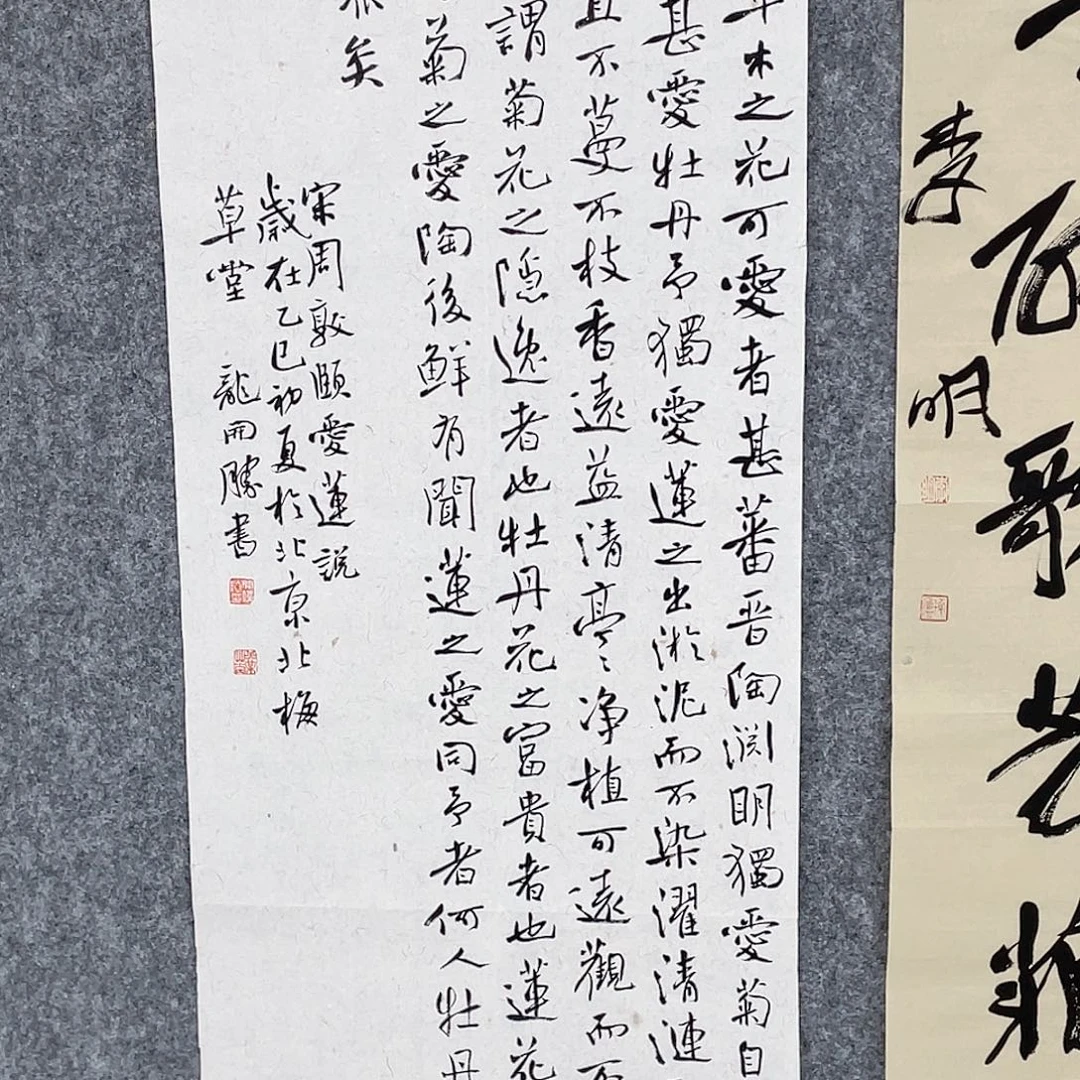 歌艺
李明
草木之花可愛者甚蕃晋陶渊明獨愛菊自
甚愛牡丹予獨愛蓮之出淤泥而不染濯清漣
直不蔓不枝香遠益清亭〻净植可遠觀而不
謂菊花之隐逸者也牡丹花之富貴者也蓮花
菊之愛陶後鮮有聞蓮之愛同予者何人牡丹
矣
宋周敦頤愛蓮説
歲在乙巳初夏於北京北梅
草堂 龍開勝書